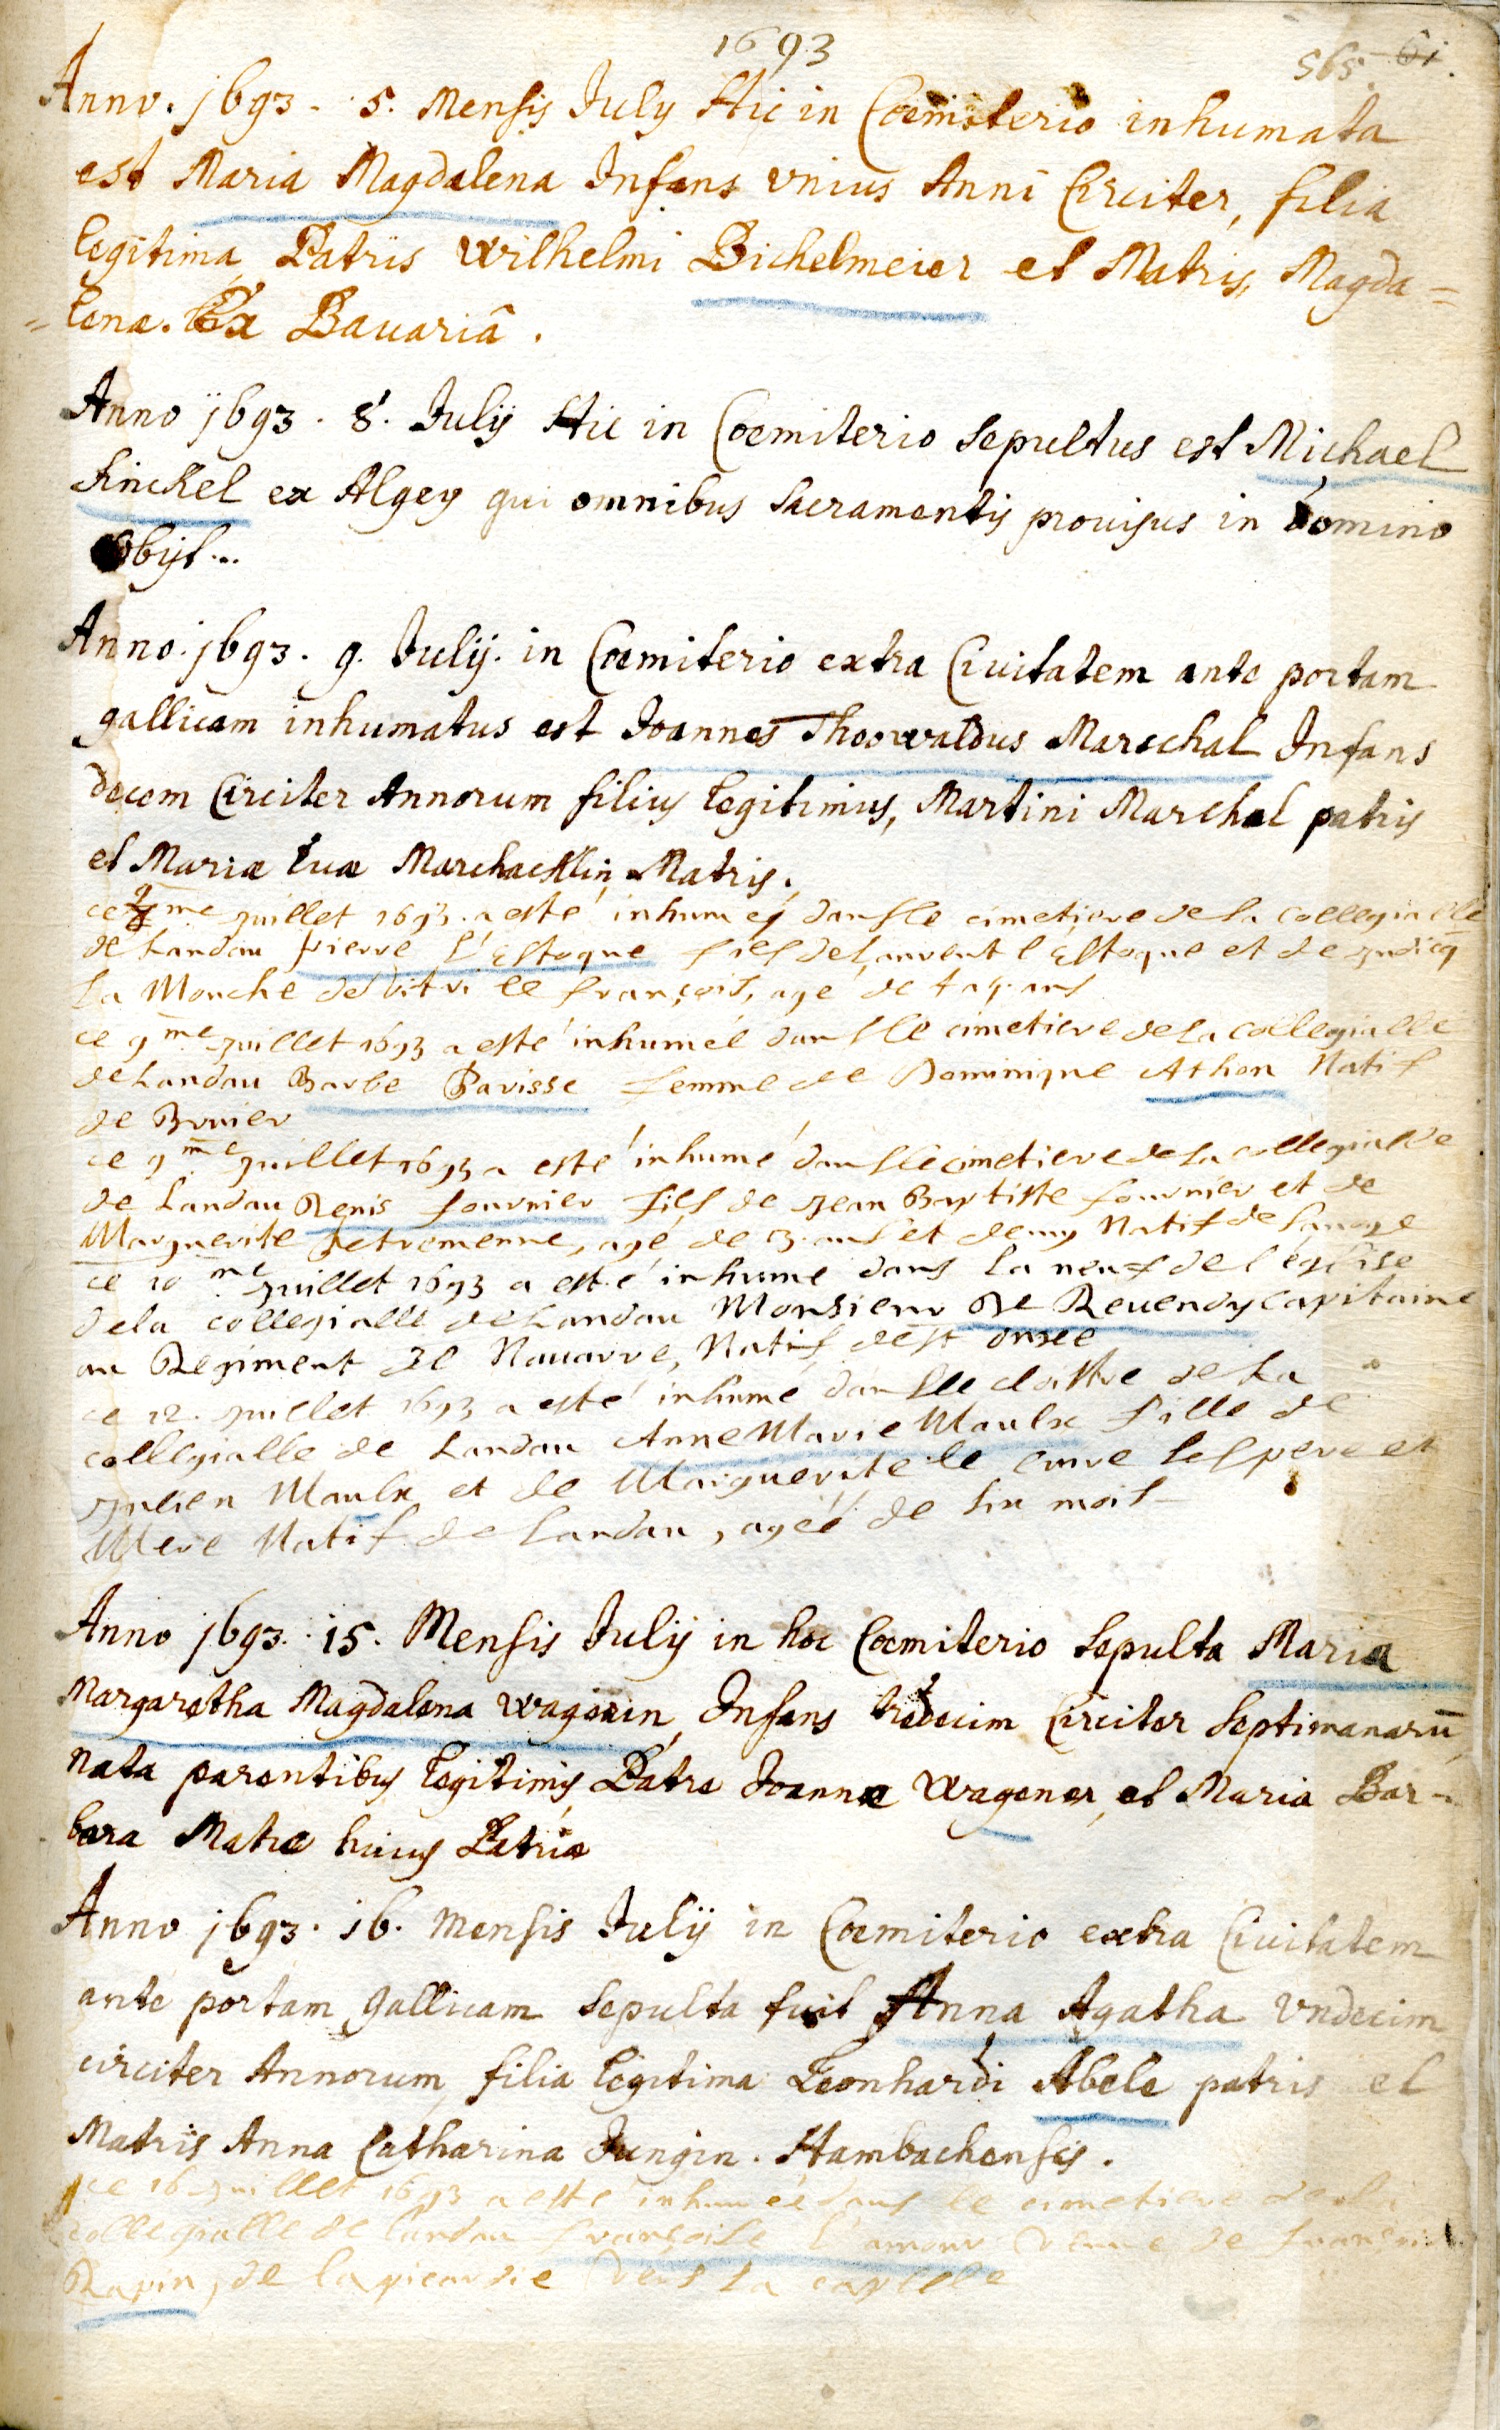 1693
565 61.
Anno. 1693. 5. Mensis July Hic in Coemiterio inhumata
est Maria Magdalena Infans vnius Anni Circiter, filia
legitima Patris Wilhelmi Bichelmeier et Matris, Magda=
=lena. Ex Bauariâ.
Anno 1693. 8. Julij Hic in Coemiterio Sepultus est Michael
Kinckel ex Algey qui omnibus Sacramentis prouisus in Domino
obijt...
Anno. 1693. 9. Julij. in Coemiterio extra Ciuitatem ante portam
gallicam inhumatus est Joannes Thoowaldus Mareschal Infans
decem Circiter Annorum filius legitimus, Martini Marchal patris
et Mariæ Euæ Matris.
ce me juillet 1693. a esté inhumé dans le cimetiere de la collegialle
de Landau pierre l'Estoque fils de Laurent l'Estoque et de
La Mouche de Vitri le françois, age de ans
ce 9.me juillet 1693 a esté inhumée dans le cimetiere de la collegialle
de Landau Barbe Parisse femme de Dominique Athon Natif
de Bruier
ce 9.me juillet 1693 a esté inhumé dans le cimetiere de la collegialle
de Landau Denis fournier fils de Jean Baptiste fournier et de
Marguerite Petremenne, agé de 3. ans et demy Natif de
ce 10.me juillet 1693 a esté inhumé dans la neuf de l'église
de la collegialle de Landau Monsieur De Reuendy capitaine
au Regiment de Nauarre, Natif de st
ce 12. juillet 1693 a esté inhumé dans le cloistre de La
collegialle de Landau Anne Marie Maulx fille de
Julien Maulx et de Marguerite le cuire Ses pere et
Mere Natif de Landau, agéé de six mois
Anno 1693. 15. Mensis Julij in hoc Coemiterio Sepulta Maria
Margaretha Magdalena Wagenin, Infans tredecim Circiter Septimanarū
nata parentibus legitimis Patre Joanne Wagener, et Maria Bar-
bara Matre huius Patriæ
Anno 1693. 16. Mensis Julij in Coemiterio extra Ciuitatem
ante portam Gallicam Sepulta fuit Anna Agatha Vndecim
circiter Annorum, filia legitima Leonhardi Abele patris et
Matris Anna Catharina Jungin. Hambachensis.
ce 16 juillet 1693 a esté inhumée dans le cimetiere de la
collegialle de landau françoise l'amour veuue de françois
Rapin, de la picardie vers la capelle